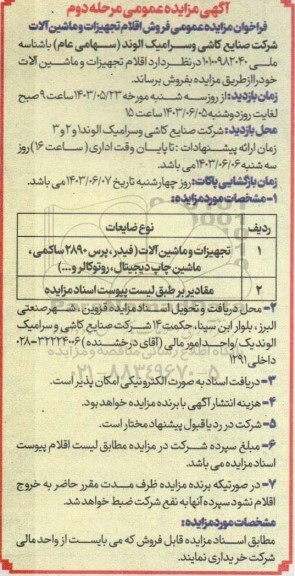 آگهی مزایده عمومی مرحله دوم
فراخوان مزایده عمومی فروش اقلام تجهیزات و ماشین آلات
شرکت صنایع کاشی وسرامیک الوند (سهامی عام) باشناسه
ملی ۱۰۱۰۰۹۸۲۰۴۰ در نظر دارد اقلام تجهیزات و ماشین آلات
خود را از طریق مزایده بفروش برساند.
زمان بازدید: از روز سه شنبه مورخه ۱۴۰۳/۰۵/۲۳ ساعت ۹ صبح
لغایت روز دوشنبه ۱۴۰۳/۰۶/۰۵ ساعت ۱۵
محل بازدید: شرکت صنایع کاشی وسرامیک الوند۱ و ۲ و ۳
زمان ارائه پیشنهادات : تا پایان وقت اداری ( ساعت ۱۶) روز
سه شنبه ۱۴۰۳/۰۶/۰۶ می باشد.
زمان بازگشایی پاکات: روز چهارشنبه تاریخ ۱۴۰۳/۰۶/۰۷ می باشد.
۱- مشخصات مورد مزایده:
ردیف نوع ضایعات
۱ تجهیزات و ماشین آلات (فیدر، پرس ۲۸۹۰ ساکمی،
ماشین چاپ دیجیتال، روتوکالر و...)
۲ مقادیر بر طبق لیست پیوست اسناد مزایده
۲- محل دریافت و تحویل اسناد مزایده قزوین ، شهر صنعتی
البرز ، بلوار ابن سینا، حکمت ۱۴ شرکت صنایع کاشی و سرامیک
الوند یک /واحد امور مالی (آقای درخشنده ) ۳۲۲۲۴۰۰۶-۰۲۸
داخلی ۱۲۹۱
۰۲۱-۸۸۳۴۹۶۷۰-۵
۳- دریافت اسناد به صورت الکترونیکی امکان پذیر است.
۴- هزینه انتشار آگهی با برنده مزایده خواهد بود.
۵- شرکت در رد یا قبول پیشنهاد مختار است.
۶- مبلغ سپرده شرکت در مزایده مطابق لیست اقلام پیوست
اسناد مزایده می باشد.
۷- در صورتیکه برنده مزایده ظرف مدت مقرر حاضر به خروج
اقلام نشود سپرده آنها به نفع شرکت ضبط خواهد شد.
مشخصات مورد مزایده:
مطابق اسناد مزایده قابل فروش که می بایست از واحد مالی
شرکت خریداری نمایند.